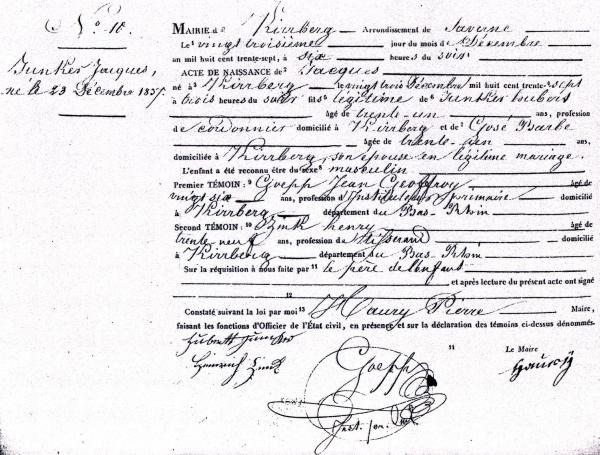 N.º 18.
Junker Jacques,
né le 23 Décembre 1837.
MAIRIE d e Kirrberg Arrondissement de Saverne
Le 1 vingt troisième jour du mois de Décembre
an mil huit cent trente-sept, à six heures du soir
ACTE DE NAISSANCE de 2 Jacques
né à 3 Kirrberg le vingt trois Décembre mil huit cent trente-sept
à trois heures du soir fils 5 légitime de 6 Junker hubert
âgé de trente-un ans, profession
d e cordonnier domicilié à Kirrberg et de 7 Gosé Barbe
âgée de trente-un ans,
domiciliée à Kirrberg, son épouse en légitime mariage.
L'enfant a été reconnu être du sexe 8 masculin
Premier TÉMOIN : 9 Goepp Jean Geoffroy âgé de
vingt six ans, profession d' Instituteur primaire domicilié
à Kirrberg département du Bas-Rhin
Second TÉMOIN : 10 Zink henry âgé de
trente neuf ans, profession de tisserand domicilié
à Kirrberg département du Bas-Rhin
Sur la réquisition à nous faite par 11 le père de l'enfant
et après lecture du présent acte ont signé
12
Constaté suivant la loi par moi 13 Haury Pierre Maire,
faisant les fonctions d'Officier de l'État civil, en présence et sur la déclaration des témoins ci-dessus dénommés.
14 Le Maire
Heinrich Zink Goepp Haury